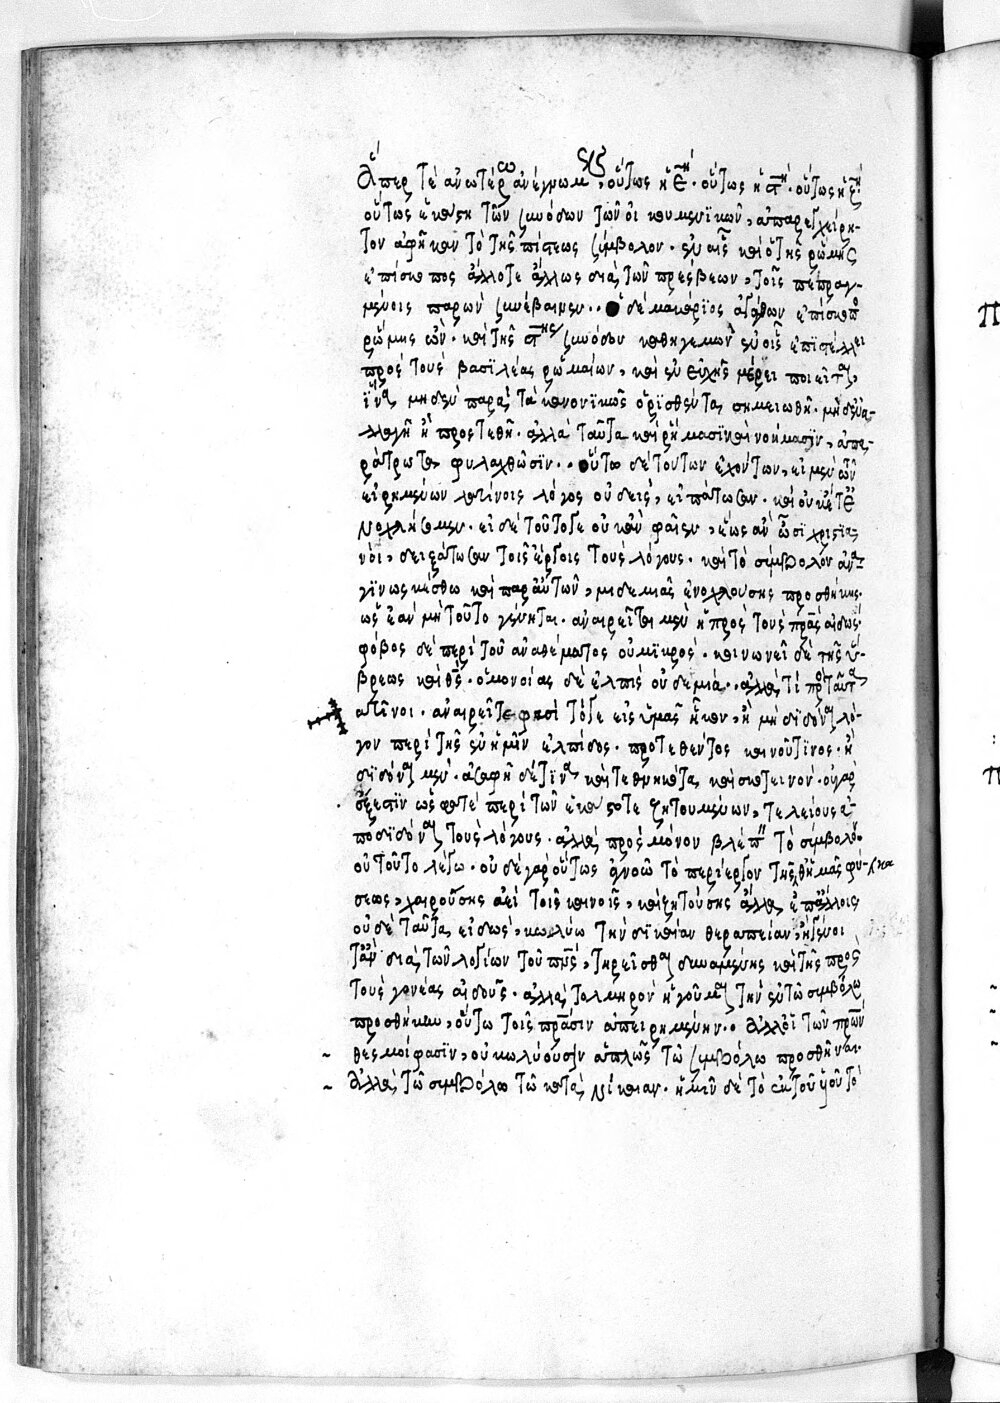 ἅπερ τὲ ἀνωτέρω ἀνέγνωμεν, οὕτως ἡ ε̄. οὕτως ἡ ς̄. οὕτως ἡ ζ̄.
οὕτως ἑκάστη τῶν συνόδων τῶν οἰκουμενικῶν, ἀπαρεγχείρη-
τον ἀφῆκαν τὸ τῆς πίστεως σύμβολον. ἐν αἷς καὶ ὁ τῆς ῥώμης
ἐπίσκοπος ἄλλοτε ἄλλως διὰ τῶν πρέσβεων, τοῖς πεπραγ-
μένοις παρὼν συνέβαινεν. ὁ δὲ μακάριος ἀγάθων ἐπίσκοπος
ῥώμης ὢν. καὶ τῆς ς̄ης συνόδου καθηγεμὼν ἐν οἷς ἐπιστέλλει
πρὸς τοὺς βασιλέας ῥωμαίων, καὶ ἐν εὐχῆς μέρει ποιεῖται,
ἵνα μηδὲν παρὰ τὰ κανονικῶς ὁρισθέντα σημειωθῆ. μηδ' ἐνα-
λλαγῆ ἢ προστεθῆ. ἀλλὰ ταῦτα καὶ ῥήμασιν καὶ νοήμασιν, ἀπε-
ράτρωτα φυλαχθῶσιν. οὕτω δὲ τούτων ἐχόντων, εἰ μὲν οὖν
εἰρημένων λατίνοις λόγος οὐδεὶς, εἰπάτωσαν. καὶ οὐκέτι ἐ
νοχλήσομεν. εἰ δὲ τοῦτό γε οὐκ ἂν φαῖεν, ἕως ἂν ὦσι χριστια-
νοὶ, δειξάτωσαν τοῖς ἔργοις τοὺς λόγους. καὶ τὸ σύμβολον ἀνα-
γινωσκέσθω καὶ παρ' αὐτῶν, μιδεμιᾶς ἐνοχλούσης προσθήκης.
ὡς ἐὰν μὴ τοῦτο γένηται. ἀναιρεῖται μὲν ἡ πρὸς τοὺς πρας αἰδὼς.
φόβος δὲ περὶ τοῦ ἀναθέματος οὐ μικρὸς. κοινωνεῖ δὲ τῆς ὕ-
βρεως καὶ θς. ὁμονοίας δὲ ἐλπὶς οὐδεμία. ἀλλὰ τί πρὸς ταῦτα
λατῖνοι. ἀναιρεῖτέ φασι τό γε εἰς ὑμᾶς ἧκον, ἢ μὴ διδόναι λό-
γον περὶ τῆς ἐν ἡμῖν ἐλπίδος. προτεθέντος καινοῦ τινος. ἢ
διδόναι μὲν. ἀσαφῆ δέ τινα καὶ τεθνηκότα, καὶ σκοτεινόν. οὐ γὰρ
ὥστε περὶ τῶν ἑκάστοτε ζητουμένων, τελείους ἀ-
ποδιδόναι τοὺς λόγους. ἀλλὰ πρὸς μόνον βλέπειν τὸ σύμβολον.
οὐ τοῦτο λέγω. οὐδὲ γὰρ οὕτως ἀγνοῶ τὸ περίεργον τῆς καθ' ἡμᾶς φύ-
σεως, χαιρούσης ἀεὶ τοῖς καινοῖς, καὶ ζητούσης ἄλλα ἐπ' ἄλλοις
οὐδὲ ταῦτα εἰδὼς, κωλύω τὴν δικαίαν θεραπείαν,
διὰ τῶν λογίων τοῦ πνς, τηρεῖσθαι δυναμένης καὶ τῆς πρὸς
τοὺς γονέας αἰδοῦς. ἀλλὰ τολμηρὸν ἡγοῦμαι τὴν ἐν τῶ συμβόλω
προσθήκην, οὕτω τοῖς πρασιν ἀπειρημένην. ἀλλ' οἱ τῶν πρων
θεσμοί φασϊν, οὐ κωλύουσιν ἁπλῶς τῶ συμβόλω προσθῆναι.
ἀλλὰ τῶ συμβόλω τῶ κατὰ νίκαιαν. ἡμῖν δὲ τὸ ἐκ τοῦ υἱοῦ τὸ